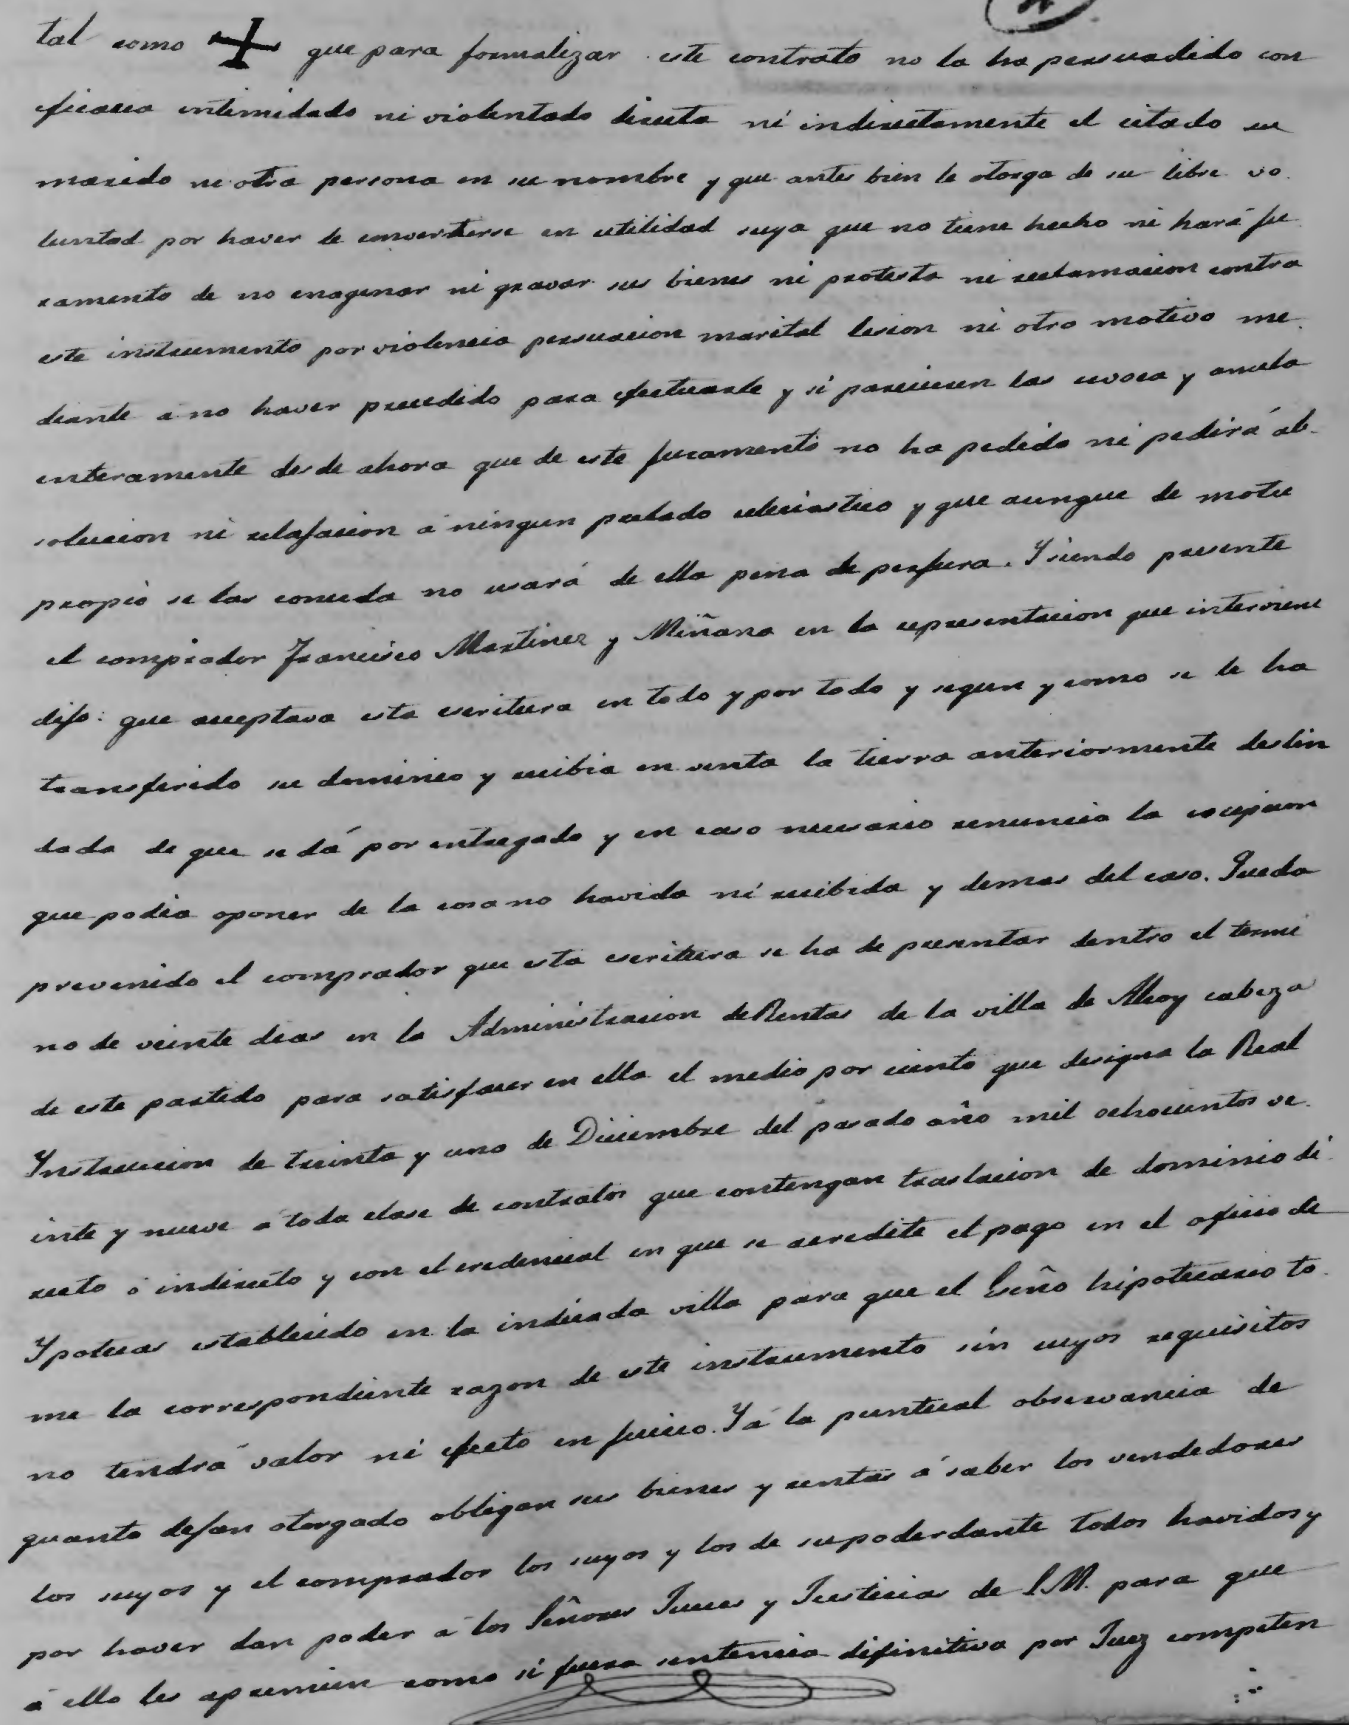 tal como ✝ que para formalizar este contrato no la ha persuadido con
eficacia intimidado ni violentado directa ni indirectamente el citado su
marido ni otra persona en su nombre y que antes bien le otorga de su libre vo
luntad por haver de convertirse en utilidad suya que no tiene hecho ni hará ju
ramento de no enagenar ni gravar sus bienes ni protesta ni reclamacion contra
este instrumento por violencia persuacion marital lesion ni otro motivo me
diante a no haver precedido para efectuarle y si pareciecen las revoca y anula
enteramente desde ahora que de este juramento no ha pedido ni pedirá ab
solucion ni relajacion a ningun prelado eclesiastico y que aunque de motu
propio se las conceda no usará de ella pena de perjura. Y siendo presente
el comprador Francisco Martinez y Miñana en la representacion que interviene
dijo: que aceptava esta escritura en todo y por todo y segun y como se le ha
transferido su dominio y recibia en venta la tierra anteriormente deslin
dada de que se dá por entregado y en caso necesario renuncia la escepcion
que podia oponer de la cosa no havida ni recibida y demas del caso. Queda
prevenido el comprador que esta escritura se ha de presentar dentro el termi
no de veinte dias en la Administracion de Rentas de la villa de Alcoy cabeza
de este partido para satisfacer en ella el medio por ciento que designa la Real
Instruccion de treinta y uno de Diciembre del pasado año mil ochocientos ve
inte y nueve a toda clase de contratos que contengan traslacion de dominio di
recto ó indirecto y con el credencial en que se acredite el pago en el oficio de
Ypotecas establecido en la indicada villa para que el Esño hipotecario to
me la correspondiente razon de este instrumento sin cuyos requisitos
no tendrá valor ni efecto en juicio. Y á la puntual observancia de
quanto dejan otorgado obligan sus bienes y rentas á saber los vendedores
los suyos y el comprador los suyos y los de su poderdante todos havidos y
por haver dan poder a los Señores Jueces y Justicias de S.M. para que
a ello les apremien como si fuera sentencia difinitiva por Juez competen